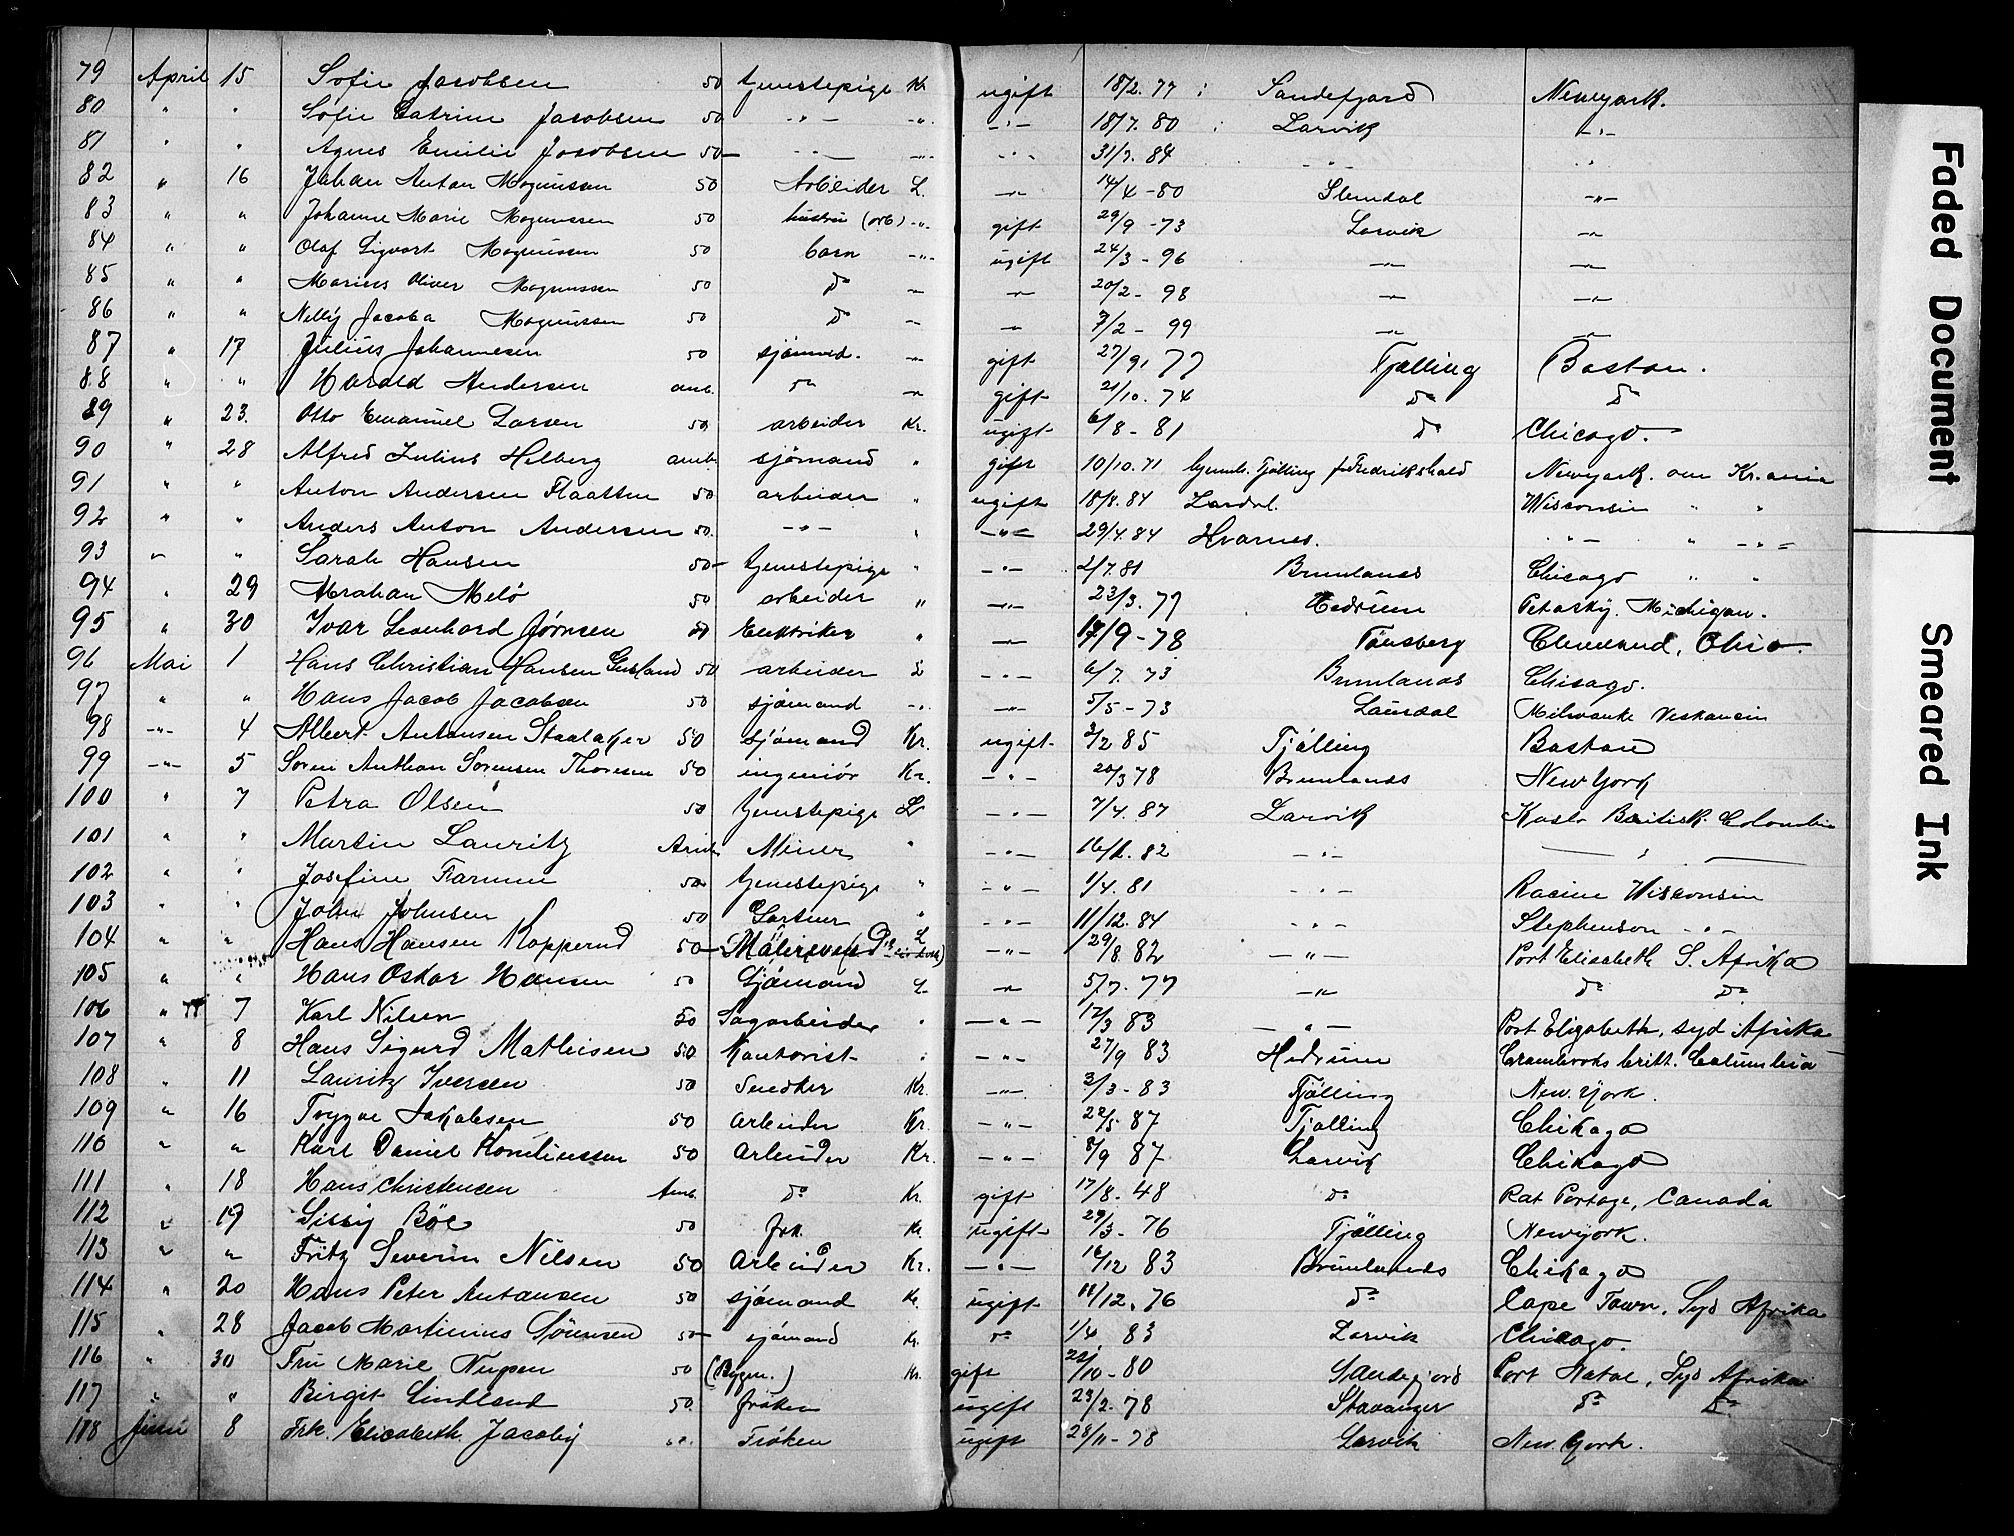 79 April 15 Sofie Jacobsen 50 tjenestepige Kr ugift 18/2. 77 Sandefjord Newyork.
80 " " Sofie Catrine Jacobsen 50 -"- -"- -"- 18/7. 80 Larvik -"-
81 " " Agnes Emilie Jacobsen 50 -"- -"- -"- 31/7. 84 -"- -"-
82 " 16 Johan Anton Magnussen 50 Arbeider L. -"- 14/4 - 80 Slemdal -"-
83 " " Johanne Marie Magnussen 50 hustru (arb) -"- gift 29/9 - 73 Larvik -"-
84 " " Olaf Sigvart Magnussen 50 barn -"- ugift 24/3 - 96 -"- -"-
85 " " Marius Oliver Magnussen 50 do -"- -"- 20/2 - 98 -"- -"-
86 " " Nelly Jacoba Magnussen 50 do -"- -"- 7/2 - 99 -"- -"-
87 " 17 Julius Johannesen 50 sjømand. -"- gift 27/9. 77 Tjølling Boston.
88 " " Harald Andersen amb. do -"- gift 21/10. 74 do do
89 " 23. Otto Emanuel Larsen 50 arbeider Kr. ugift 6/8 - 81 do Chicago.
90 " 28 Alfred Julius Helberg amb. sjømand " gift 10/10. 71 Tjølling Fredrikshald Newyork. over Kr.ania
91 " " Anton Andersen Flaatten 50 arbeider " ugift 18/8. 84 Lardal. Wisconsin " "
92 " " Anders Anton Andersen 50. -"- " -"- 29/4. 84 Hvarnes. -"- " -"-
93 " " Sarah Hansen 50 tjenestepige " -"- 2/7. 81 Brunlanes Chicago " "
94 " 29 Abraham Melø 50 arbeider " -"- 23/3. 77 Hedrum Petosky. Michigan.
95 " 30 Ivar Leonhard Jørnsen 50 Elektriker " -"- 17/9 - 78 Tönsberg Cleveland, Ohio.
96 Mai 1 Hans Christian Hansen 50 arbeider L -"- 6/7. 73 Brunlanes Chicago.
97 " " Hans Jacob Jacobsen 50 sjømand -"- -"- 5/5 - 73 Laurdal Milwauke Viskonsin
98 -"- 4 Albert Antonsen Staalaker 50 sjømand Kr. ugift 3/2 85 Tjölling Boston
99 -"- 5 Soren Anthon Sorensen Thoresen 50 ingeniör Kr. -"- 20/3 78 Brunlanes New York
100 " 7 Petra Olsen 50 tjenestepige L -"- 7/4. 87 Larvik Kaslo Britisk. Colombia
101 " " Martin Lauritz Miner " -"- 16/1. 82 -"- -"-
102 " " Josefine Farmen 50 tjenestepige " -"- 1/4. 81 -"- Racine Wisconsin
103 " " John Johnsen 50 Gartner " -"- 11/12. 84 -"- Stephenson -"-
104 " " Hans Hansen Kopperud 50 L -"- 29/8. 82 -"- Port Elisabeth S. Afrika
105 " " Hans Oskar Hansen 50 Sjømand L -"- 5/7. 77 -"- do do
106 " 7 Karl Nilsen 50 Sagarbeider " -"- 12/3 83 -"- Port Elizabeth, syd Afrika
107 " 8 Hans Sigurd Mathisen 50 Kontorist " -"- 27/9 83 Hedrum Crambrooks britt. Columbia
108 " 11 Lauritz Iversen 50 Snedker Kr. -"- 3/3 - 83 Tjölling New. York.
109 " 16 Trygve Jakobsen 50 Arbeider Kr. -"- 22/5 - 87 Tjølling Chikago
110 " " Karl Daniel Korneliussen 50 Arbeider Kr. -"- 8/9 87 Larvik Chikago
111 " 18 Hans Christensen Amb. do Kr. gift 17/8. 48 do Rat Portage, Canada
112 " 19 Sissy Böe 50 frk. Kr ugift 29/3 - 76 Tjölling Newyork.
113 " " Fritz Severin Nilsen 50 Arbeider Kr. -"- 16/12 83 Brunlanes Chikago
114 " 20 Hans Peter Antonsen 50 sjømand Kr. ugift 11/12. 76 do Cape Town, Syd Afrika
115 " 28 Jacob Martinius Sörensen 50 sjømand Kr. do 1/4 83 Larvik Chicago.
116 " 30 Fru Marie 50 Kr. gift 22/10 - 80 Sandefjord Port Natal, Syd Afrika
117 " " Birgit Lindland 50 frøken ugift 23/2 - 78 Stavanger do do
118 Juni 8 Frk. Elisabeth Jacoby Frøken ugift 28/11 - 78 Larvik New York.
Faded Document
Smeared Ink